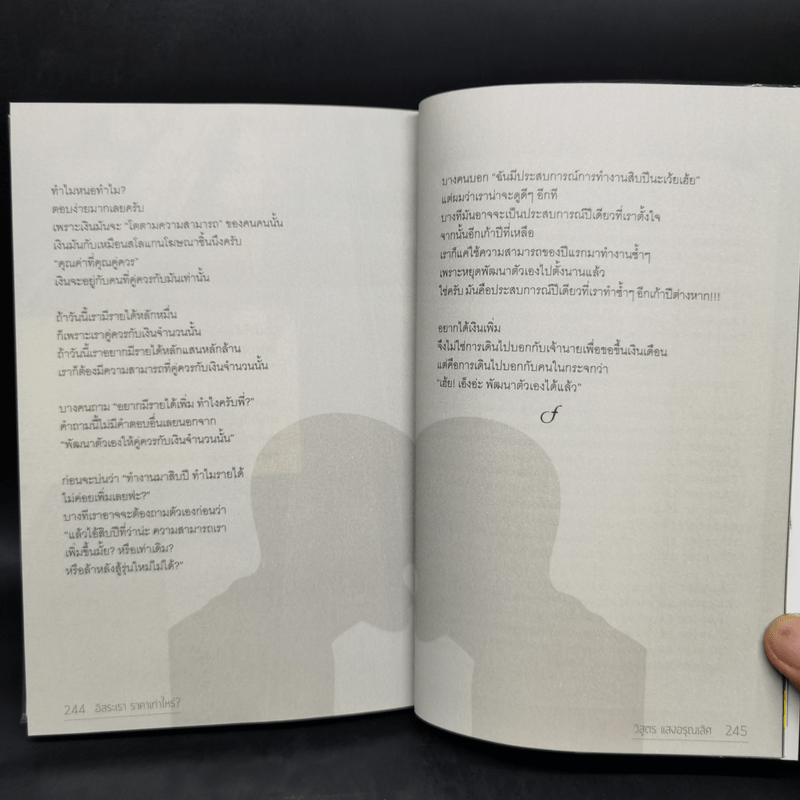 ทำไมหนอทำไม?
ตอบง่ายมากเลยครับ
เพราะเงินมันจะ “โตตามความสามารถ” ของคนคนนั้น
เงินมันก็เหมือนสโลแกนโฆษณาชิ้นนึงครับ
“คุณค่าที่คุณคู่ควร”
เงินจะอยู่กับคนที่คู่ควรกับมันเท่านั้น
ถ้าวันนี้เรามีรายได้หลักหมื่น
ก็เพราะเราคู่ควรกับเงินจำนวนนั้น
ถ้าวันนี้เราอยากมีรายได้หลักแสนหลักล้าน
เราก็ต้องมีความสามารถที่คู่ควรกับเงินจำนวนนั้น
บางคนถาม “อยากมีรายได้เพิ่ม ทำไงครับพี่?”
คำถามนี้ไม่มีคำตอบอื่นเลยนอกจาก
“พัฒนาตัวเองให้คู่ควรกับเงินจำนวนนั้น”
ก่อนจะบ่นว่า “ทำงานมาสิบปี ทำไมรายได้
ไม่ค่อยเพิ่มเลยฟะ?”
บางทีเราอาจจะต้องถามตัวเองก่อนว่า
“แล้วไอ้สิบปีที่ว่าน่ะ ความสามารถเรา
เพิ่มขึ้นมั้ย? หรือเท่าเดิม?
หรือล้าหลังสู้รุ่นใหม่ไม่ได้?”
244 อิสระเรา ราคาเท่าไหร่?
บางคนบอก “ฉันมีประสบการณ์การทำงานสิบปีนะเว้ยเฮ้ย”
แต่ผมว่าเราน่าจะดูดีๆ อีกที
บางทีมันอาจจะเป็นประสบการณ์ปีเดียวที่เราตั้งใจ
จากนั้นอีกเก้าปีที่เหลือ
เราก็แค่ใช้ความสามารถของปีแรกมาทำงานซ้ำๆ
เพราะหยุดพัฒนาตัวเองไปตั้งนานแล้ว
ใช่ครับ มันคือประสบการณ์ปีเดียวที่เราทำซ้ำๆ อีกเก้าปีต่างหาก!!!
อยากได้เงินเพิ่ม
จึงไม่ใช่การเดินไปบอกกับเจ้านายเพื่อขอขึ้นเงินเดือน
แต่คือการเดินไปบอกกับคนในกระจกว่า
“เฮ้ย! เอ็งอ่ะ พัฒนาตัวเองได้แล้ว”
f
วิสูตร แสงอรุณเลิศ 245